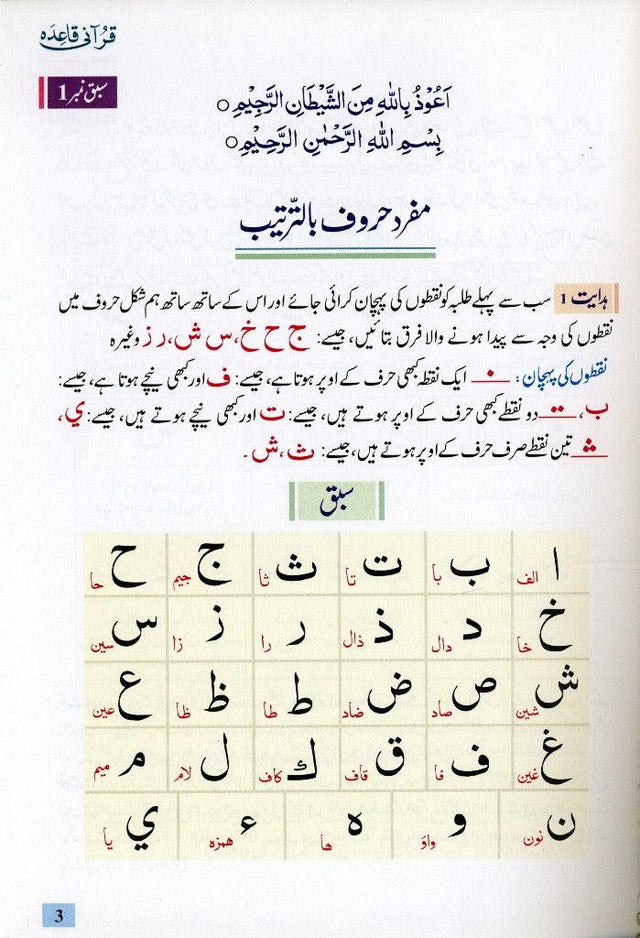 قرآنی قاعدہ
سبق نمبر 1
اَعُوْذُ بِاللّٰهِ مِنَ الشَّيْطَانِ الرَّجِيْمِ ○
بِسْمِ اللّٰهِ الرَّحْمٰنِ الرَّحِيْمِ ○
مفرد حروف بالتّرتیب
ہدایت 1 سب سے پہلے طلبہ کو نقطوں کی پہچان کرائی جائے اور اس کے ساتھ ساتھ ہم شکل حروف میں
نقطوں کی وجہ سے پیدا ہونے والا فرق بتائیں، جیسے: ج ح خ، س ش، ر ز وغیرہ
نقطوں کی پہچان: ایک نقطہ کبھی حرف کے اوپر ہوتا ہے، جیسے: ف اور کبھی نیچے ہوتا ہے، جیسے:
ب، دو نقطے کبھی حرف کے اوپر ہوتے ہیں، جیسے: ت اور کبھی نیچے ہوتے ہیں، جیسے: ي،
تین نقطے صرف حرف کے اوپر ہوتے ہیں، جیسے: ث، ش۔
سبق
ا الف ب با ت تا ث ثا ج جیم ح حا
خ خا د دال ذ ذال ر را ز زا س سین
ش شین ص صاد ض ضاد ط طا ظ ظا ع عین
غ غین ف فا ق قاف ك کاف ل لام م میم
ن نون و واؤ ه ها ء همزه ي یا
3